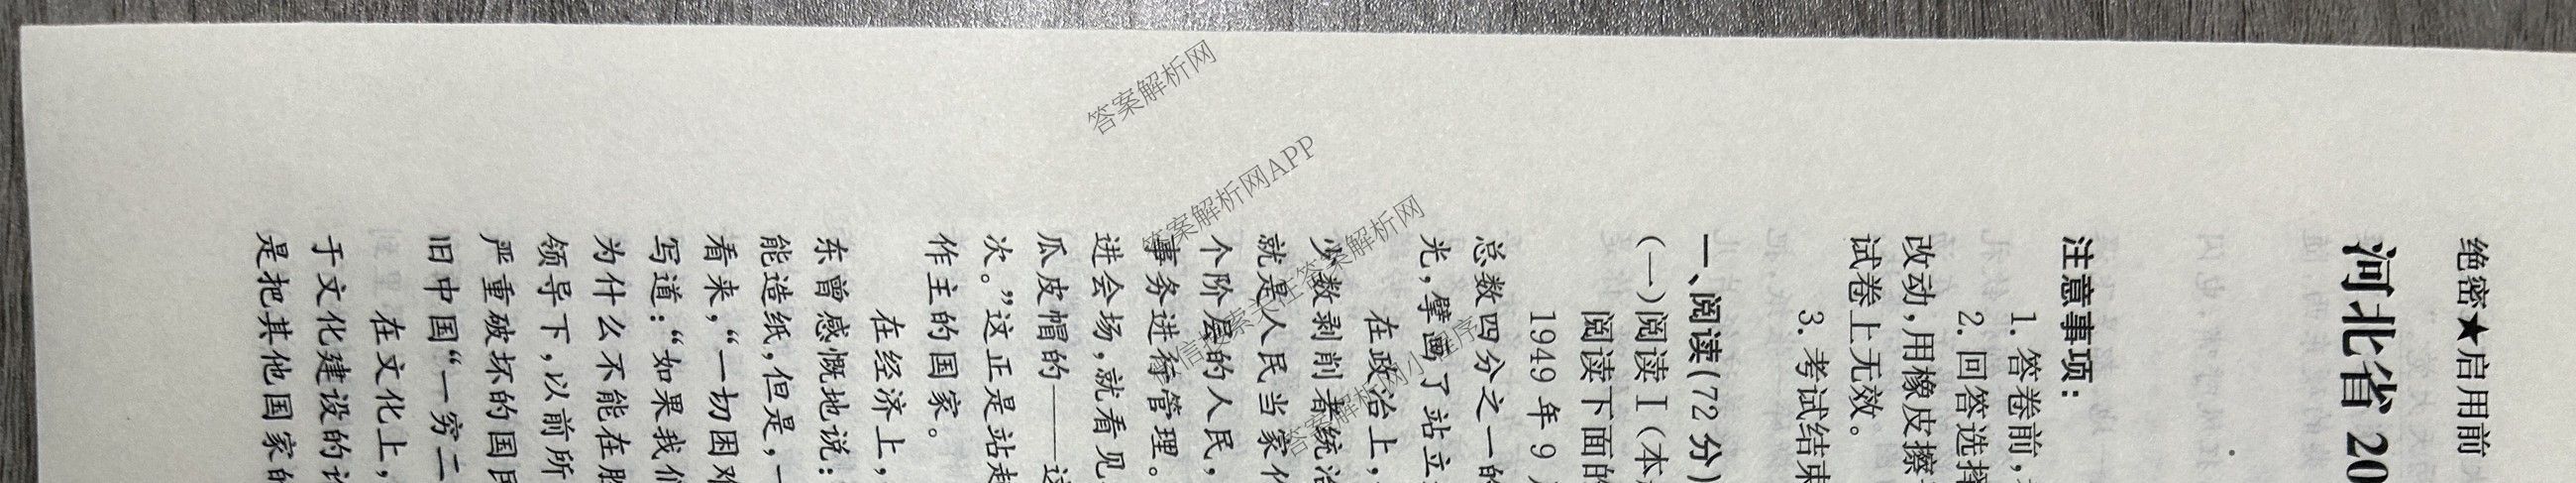 绝密★启用前
河北省 20
注意事项：
1. 答卷前，
2. 回答选择
改动，用橡皮擦
试卷上无效。
3. 考试结束
一、阅读(72分)
(一)阅读 I(本
阅读下面的
1949 年 9 月
总数四分之一的
光，擘画了站立
在政治上，
少数剥削者统治
就是人民当家作
个阶层的人民，
事务进行管理。
进会场，就看见
瓜皮帽的——这
次。”这正是站起
作主的国家。
在经济上，
东曾感慨地说：
能造纸，但是，一
看来，“一切困难
写道：“如果我们
为什么不能在胜
领导下，以前所
严重破坏的国民
旧中国“一穷二
在文化上，
于文化建设的论
是把其他国家的
答案解析网
答案解析网APP
答案解析网